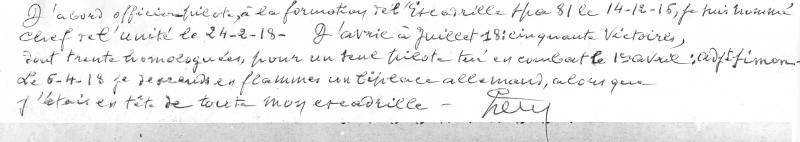 D'abord officier pilote, à la formation de l'Escadrille Spa 81 le 14-12-15, je suis nommé
chef de l'unité le 24-2-18 - D'avril à Juillet 18 : cinquante Victoires,
dont trente homologuées, pour un seul pilote tué en combat le 1er avril : adjt Simon -
Le 6-4-18 je descends en flammes un biplace allemand, alors que
j'étais en tête de toute mon escadrille -